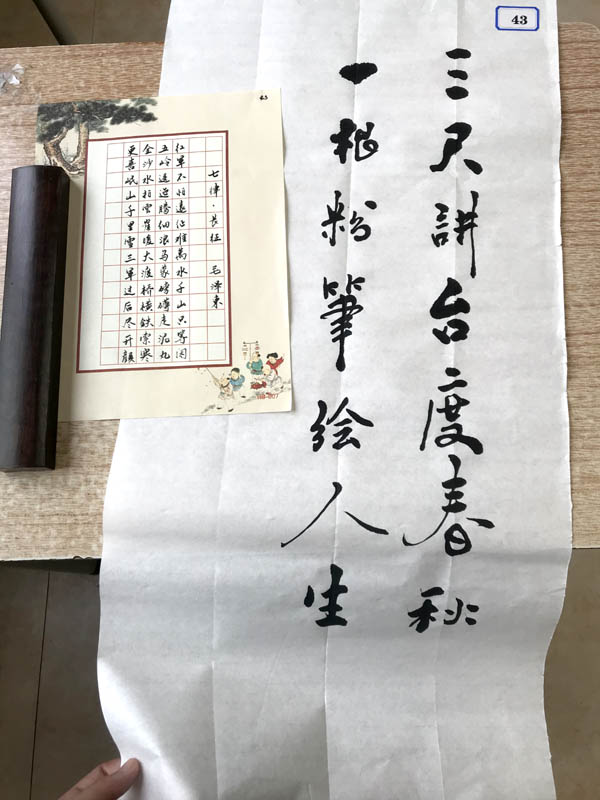 43
三尺讲台度春秋
一根粉筆绘人生
43
七律·長征 毛澤東
红軍不怕遠征難萬水千山只等闲
五岭逶迤騰细浪乌蒙磅礴走泥丸
金沙水拍雲崖暖大渡橋横鉄索寒
更喜岷山千里雪三軍过后尽开顔